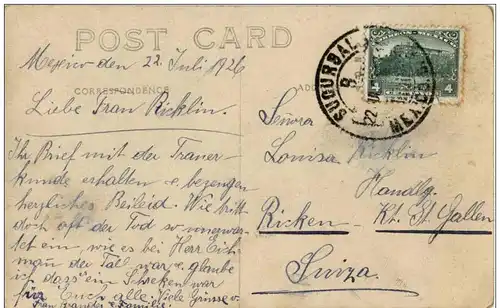 POST CARD
Mexico den 22. Juli 1926
CORRESPONDENCE
Liebe Frau Ricklin.
Ihr Brief mit der Trauer-
kunde erhalten u. bezeugen
herzliches Beileid. Wie tritt
doch oft der Tod so unerwar-
tet ein, wie es bei Herr Eich-
mann der Fall war u. glaube
ich dass ein Schreken war
für Euch alle. Viele Grüsse v.
SUCURSAL
B
22
MEX
4 4
Señora
Louisa Ricklin
Handlg.
Ricken Kt. St. Gallen
Suiza.